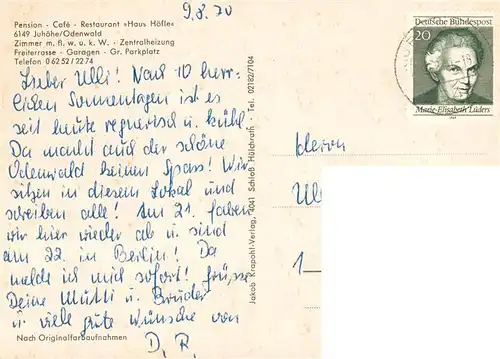 9.8.70
Pension - Café - Restaurant »Haus Höfle«
6149 Juhöhe/Odenwald
Zimmer m. fl. w. u. k. W. - Zentralheizung
Freiterrasse - Garagen - Gr. Parkplatz
Telefon 0 62 52 / 22 74
Lieber Ulli! Nach 10 herr-
lichen Sonnentagen ist es
seit heute regnerisch u. kühl.
Da macht auch der schöne
Odenwald keinen Spass! Wir
sitzen in diesem Lokal und
schreiben alle! Am 21. fahren
wir hier wieder ab u. sind
am 22. in Berlin! Da
melde ich mich sofort! Grüsse
Deine Mutti u. Bruder
u. viele gute Wünsche von
D. R.
Nach Originalfarbaufnahmen
Jakob Krapohl-Verlag, 4041 Schloß Hülchrath - Tel. 02182/7104
Deutsche Bundespost
20
Marie-Elisabeth Lüders
1969
Herrn
Ul
1